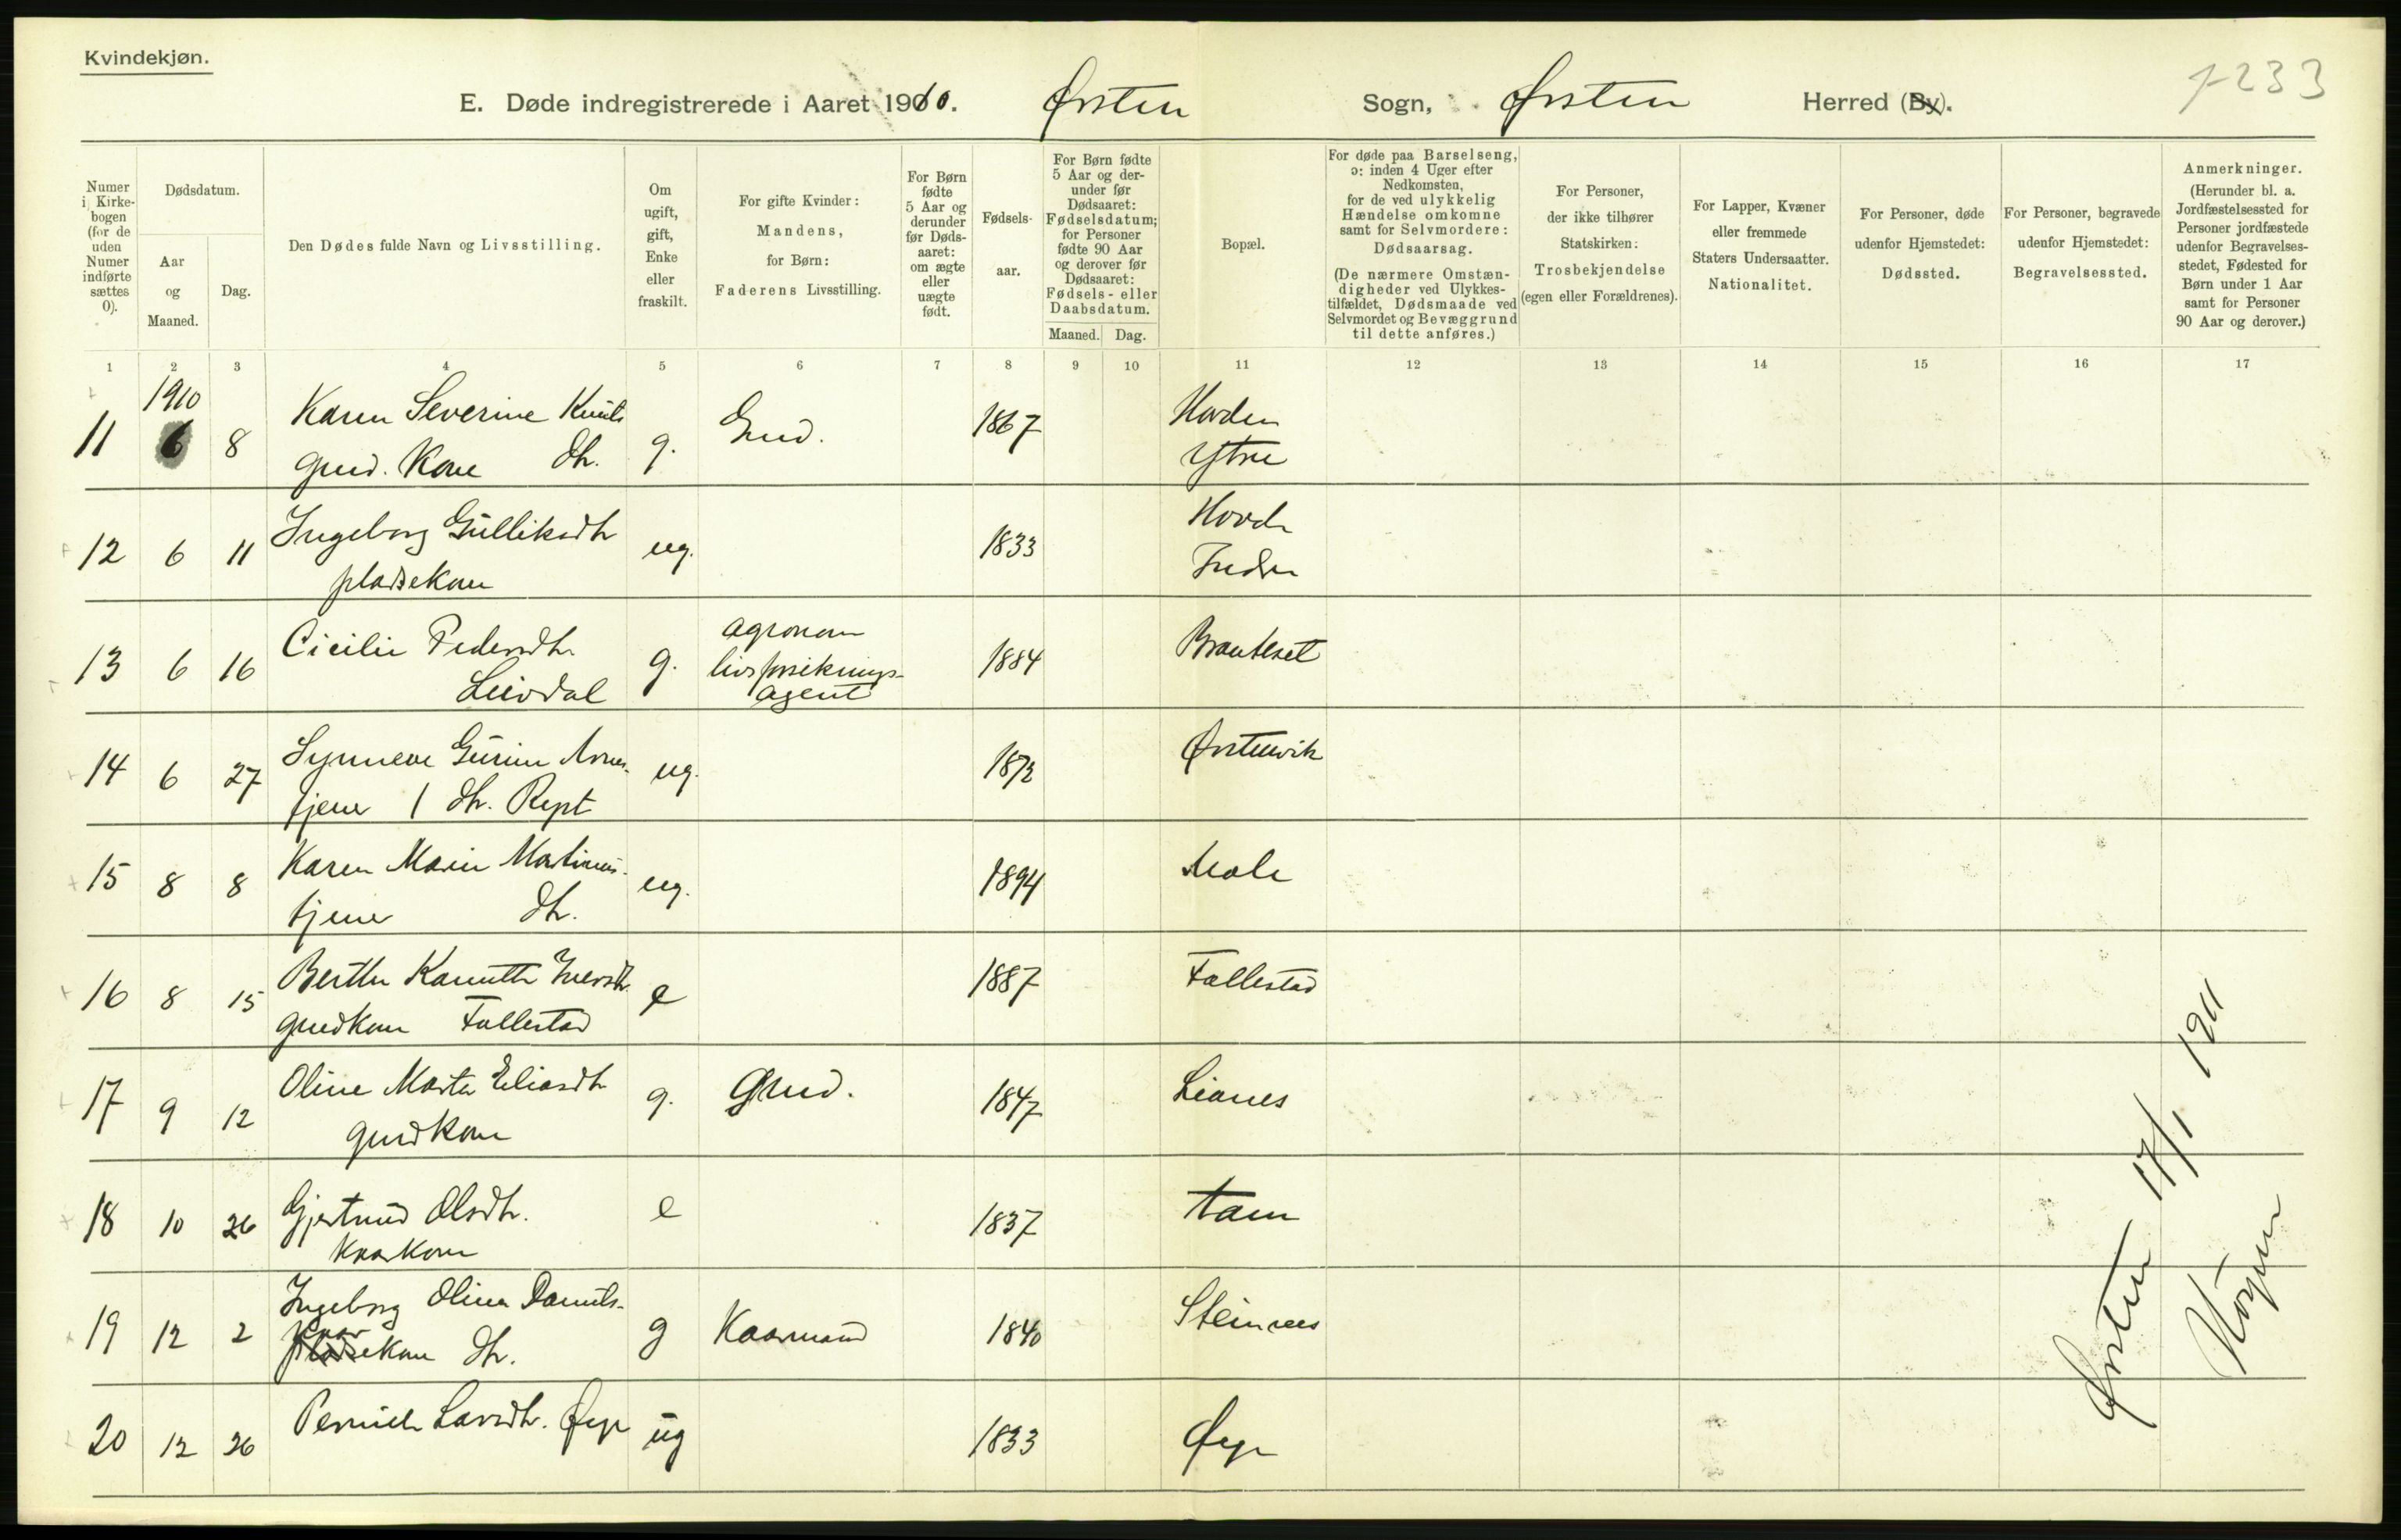 Kvindekjøn.
E. Døde indregistrerede i Aaret 1910. Ørsten Sogn, Ørsten Herred (By).
1233
Numer i Kirkebogen (for de uden Numer indførte sættes 0).
Dødsdatum.
Aar og Maaned.
Dag.
Den Dødes fulde Navn og Livsstilling.
Om ugift, gift, Enke eller fraskilt.
For gifte Kvinder: Mandens, for Børn: Faderens Livsstilling.
For Børn fødte 5 Aar og derunder før Dødsaaret: om ægte eller uægte født.
Fødselsaar.
For Børn fødte 5 Aar og derunder før Dødsaaret: Fødselsdatum; for Personer fødte 90 Aar og derover før Dødsaaret: Fødsels- eller Daabsdatum.
Maaned. Dag.
Bopæl.
For døde paa Barselseng, ɔ: inden 4 Uger efter Nedkomsten, for de ved ulykkelig Hændelse omkomne samt for Selvmordere: Dødsaarsag.
(De nærmere Omstændigheder ved Ulykkestilfældet, Dødsmaade ved Selvmordet og Bevæggrund til dette anføres.)
For Personer, der ikke tilhører Statskirken: Trosbekjendelse (egen eller Forældrenes).
For Lapper, Kvæner eller fremmede Staters Undersaatter. Nationalitet.
For Personer, døde udenfor Hjemstedet: Dødssted.
For Personer, begravede udenfor Hjemstedet: Begravelsessted.
Anmerkninger.
(Herunder bl. a. Jordfæstelsessted for Personer jordfæstede udenfor Begravelsesstedet, Fødested for Børn under 1 Aar samt for Personer 90 Aar og derover.)
1 2 3 4 5 6 7 8 9 10 11 12 13 14 15 16 17
1910
11 6 8 Karen Severine Knuts g. Grd. 1867 Hovden
grd. Kone dtr. Ytre
12 6 11 Ingeborg Gulliksdtr ug. 1833 Hovde
pladsekone Indre
13 6 16 Cicilie Pedersdtr g. agronom livsforsikrings- agent 1884 Brauteset
Leivdal
14 6 27 Synneve Gurine Arnes- ug. 1873 Ørstenvik
tjener dtr. Ryst
15 8 8 Karen Marie Martinus- ug. 1894 Mole
tjener dtr.
16 8 15 Berthe Karnutte Iversdtr e 1887 Follestad
grdkone Follestad
17 9 12 Oline Marta Eliasdtr g. Grd. 1847 Lianes
grdkone
18 10 26 Gjertrud Olsdtr. e 1837 Aam
Kaarkone
19 12 2 Ingeborg Olina Daniels- g Kaarmand 1840 Steinnes
kaar
pladsekone dtr.
20 12 26 Pernille Larsdtr. Øye ug 1833 Øye
Ørsten 17/1 1911